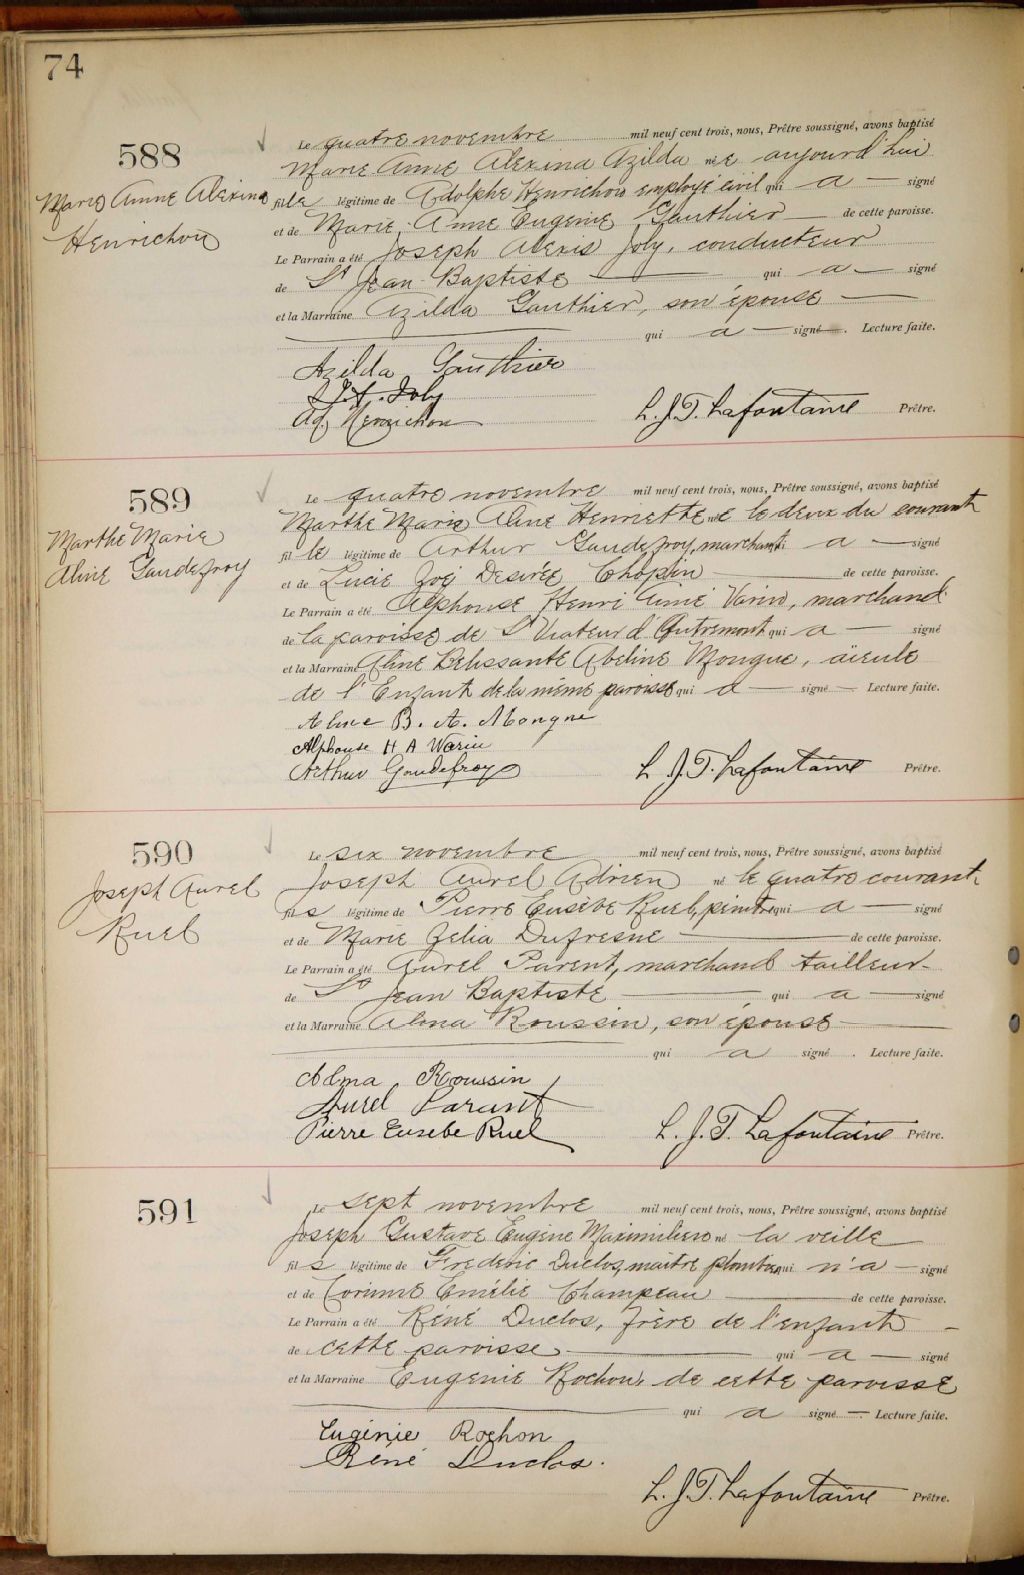 74
588
Marie Anne Alexina
Henrichon
Le quatre novembre mil neuf cent trois, nous, Prêtre soussigné, avons baptisé
Marie Anne Alexina Azilda née aujourd'hui
fille légitime de Adolphe Henrichon employé civil qui a — signé
et de Marie Anne Eugenie Gauthier — de cette paroisse.
Le Parrain a été Joseph Alexis Joly, conducteur
de St Jean-Baptiste — qui a — signé
et la Marraine Azilda Gauthier, son épouse —
qui a — signé —. Lecture faite.
Azilda Gauthier
J. A. Joly
Ad. Henrichon
L. J. T. Lafontaine Prêtre.
589
Marthe Marie
Aline Gaudefroy
Le quatre novembre mil neuf cent trois, nous, Prêtre soussigné, avons baptisé
Marthe Marie Aline Henriette née le deux du courant
fille légitime de Arthur Gaudefroy, marchand qui a — signé
et de Lucie Zoé Desirée Chopin — de cette paroisse.
Le Parrain a été Alphonse Henri Aimé Varin, marchand
de la paroisse de St Viateur d'Outremont qui a — signé
et la Marraine Aline Belissante Abeline Mongue, aïeule
de l'Enfant de la même paroisse qui a — signé — Lecture faite.
Aline B. A. Mongne
Alphonse H A Warin
Arthur Gaudefroy
L. J. T. Lafontaine Prêtre.
590
Joseph Aurel
Ruel
Le six novembre mil neuf cent trois, nous, Prêtre soussigné, avons baptisé
Joseph Aurel Adrien né le quatre courant
fils légitime de Pierre Eusèbe Ruel, peintre qui a — signé
et de Marie Zelia Dufresne — de cette paroisse.
Le Parrain a été Aurel Parent, marchand tailleur
de St Jean Baptiste — qui a — signé
et la Marraine Alma Roussin, son épouse —
qui a signé . Lecture faite.
Alma Roussin
Aurel Parent
Pierre Eusebe Ruel
L. J. T. Lafontaine Prêtre.
591
Le sept novembre mil neuf cent trois, nous, Prêtre soussigné, avons baptisé
Joseph Gustave Eugène Maximilien né la veille
fils légitime de Frederic Duclos, maître plombier qui n'a — signé
et de Corinne Emélie Champeau — de cette paroisse.
Le Parrain a été Réné Duclos, frère de l'enfant —
de cette paroisse — qui a — signé
et la Marraine Eugenie Rochon, de cette paroisse
qui a signé — Lecture faite.
Eugénie Rochon
Réné Duclos.
L. J. T. Lafontaine Prêtre.